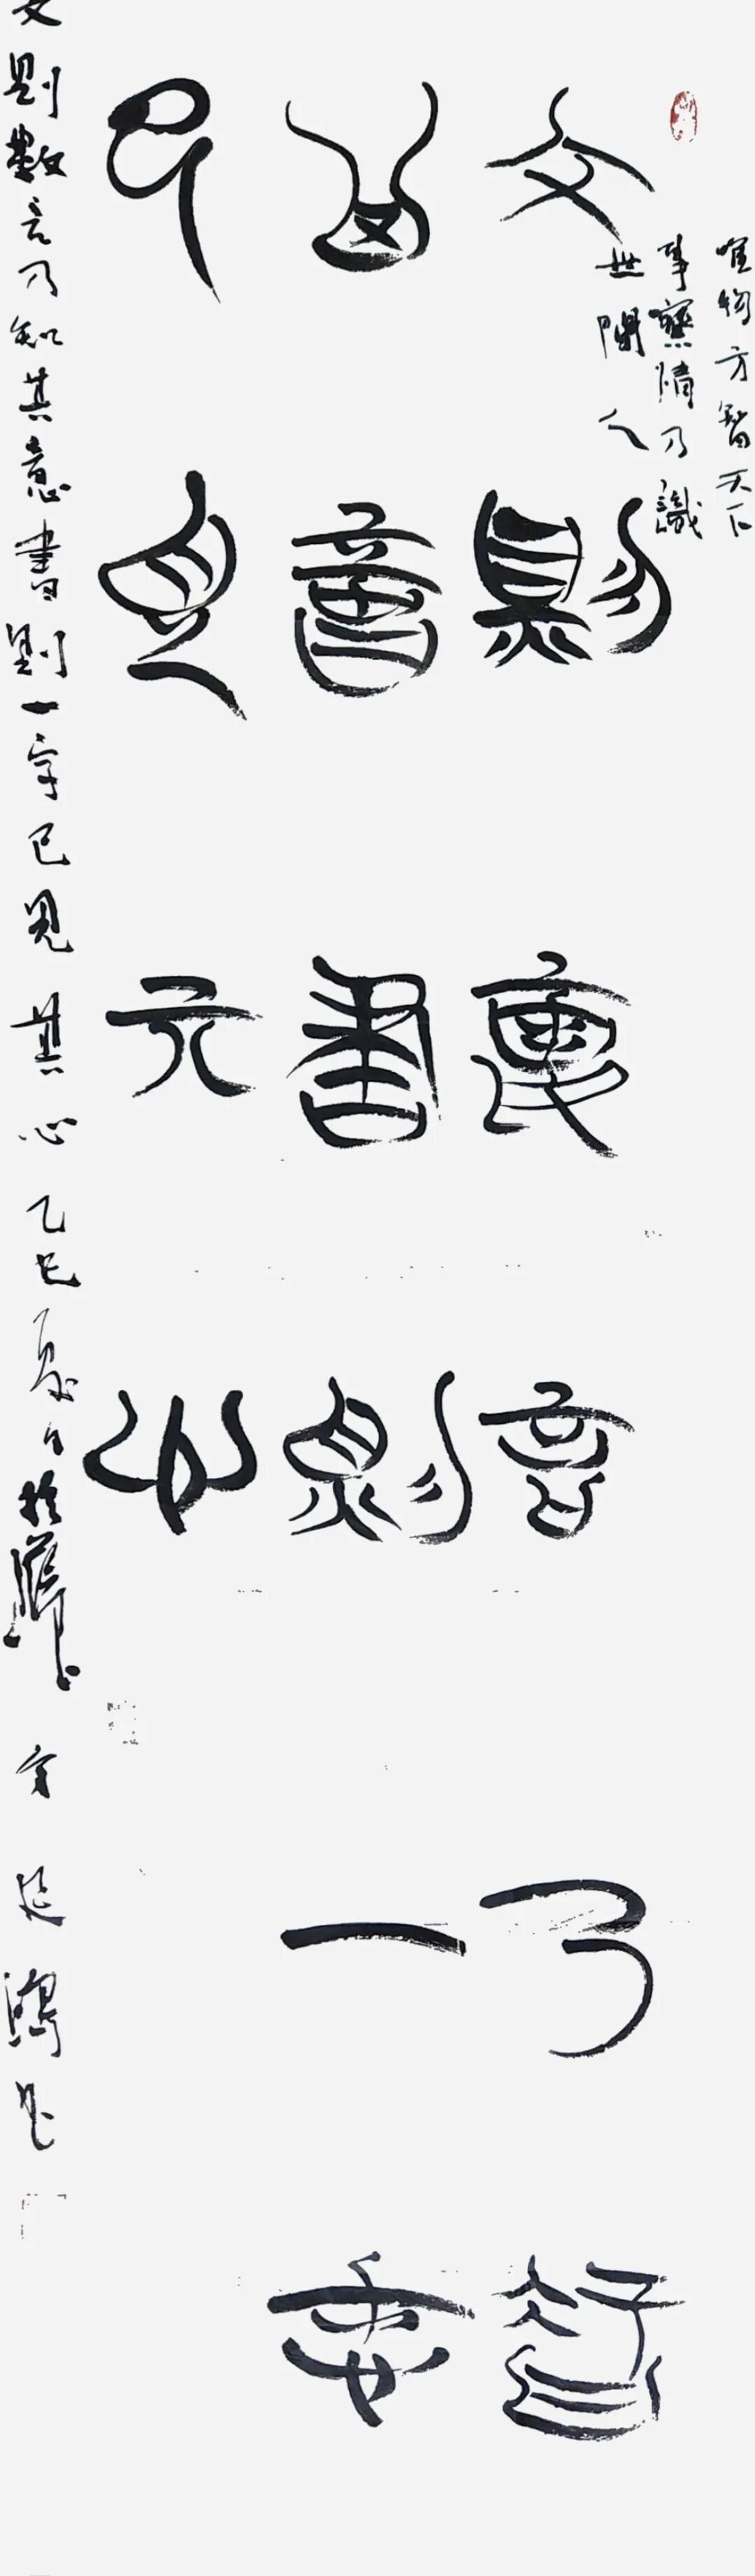 唯物方智天下
事察情乃識
世間人
文則數言乃知
其意書則一字
已見其心
文則數言乃知其意書則一字已見其心乙巳夏日於